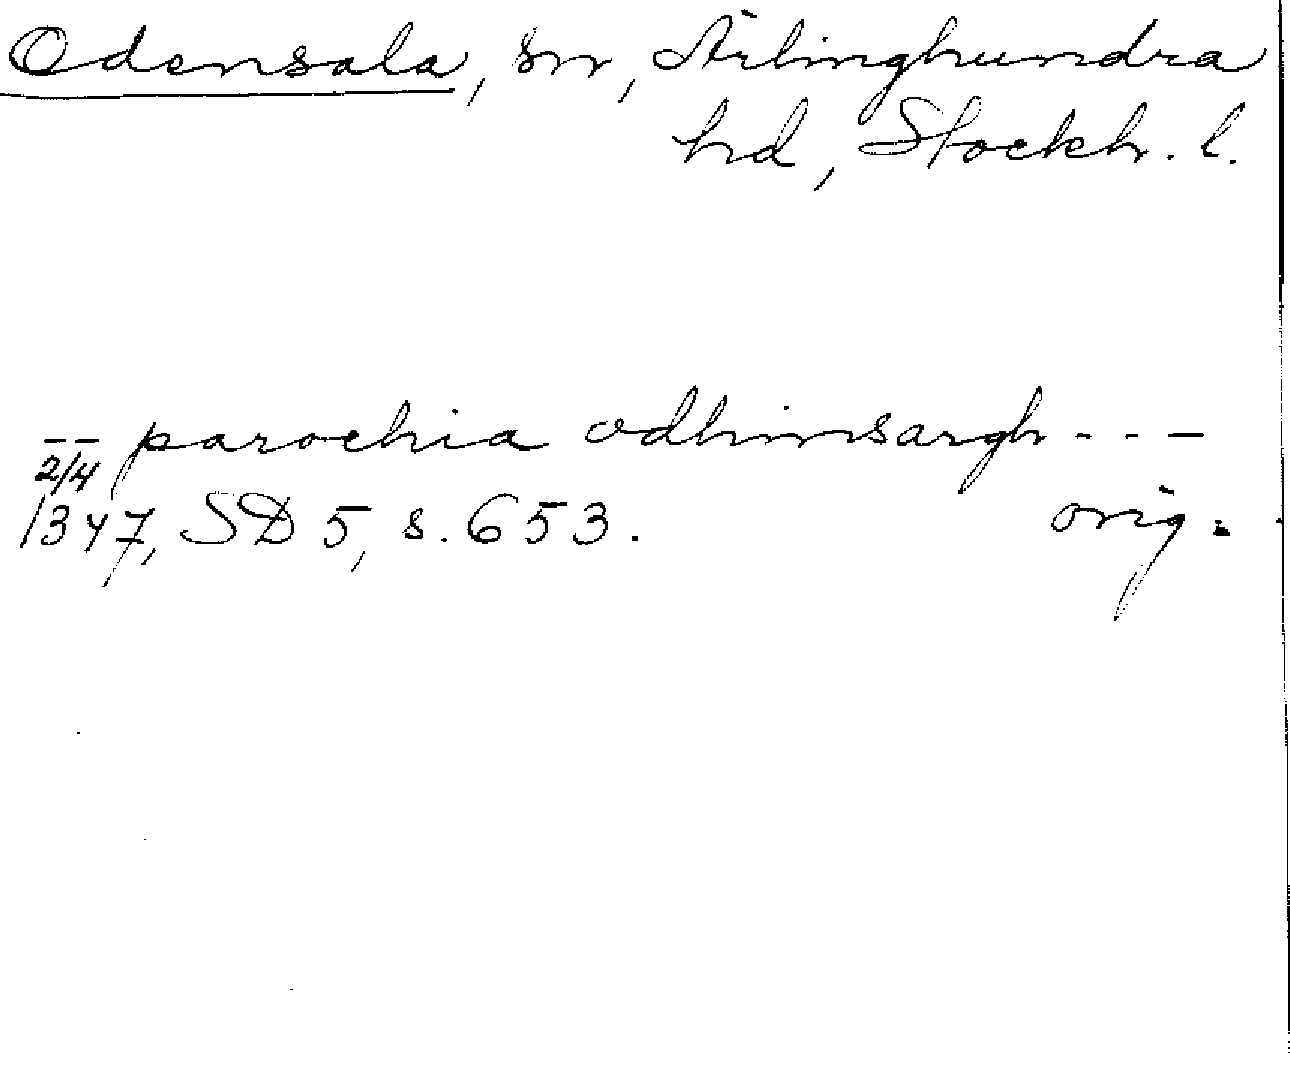 Odensala, sn, Ärlinghundra
hd, Stockh. l.
-- parochia odhinsargh ---
2/4
1347, SD 5, s. 653. orig.